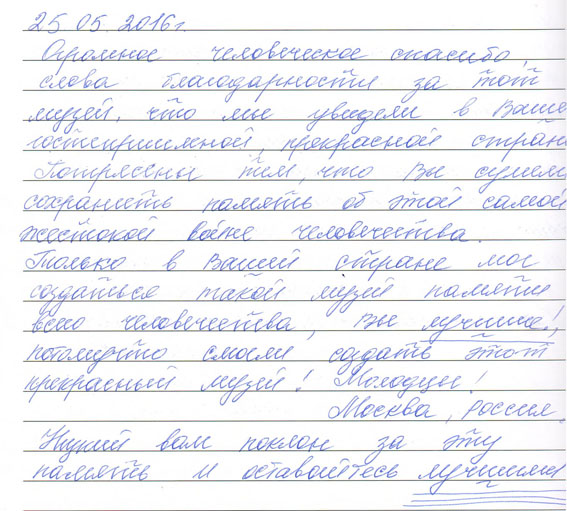 25 05. 2016 г.
Огромное человеческое спасибо,
слова благодарности за тот
музей, что мы увидели в Ваше
гостеприимной, прекрасной стран
Потрясены тем, что Вы сумел
сохранить память об этой самой
жестокой войне человечества.
Только в Вашей стране мог
создаться такой музей памяти
всего человечества, Вы лучшие!,
потомучто смогли создать этот
прекрасный музей! Молодцы!
Москва, Россия.
Низкий вам поклон за эту
память и оставайтесь лучшими